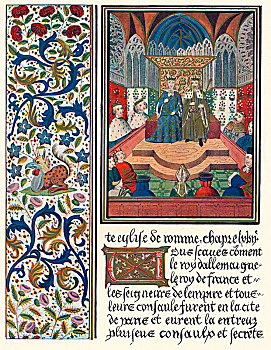 te eglise de romme. Chapre
Vous scaues coment
le roy dallemaigne
le roy de france et
les seigneurs de lempire et tous
leurs consaulx furent en la cite
de rains et eurent la entreux
pluseurs consaulx et secrets